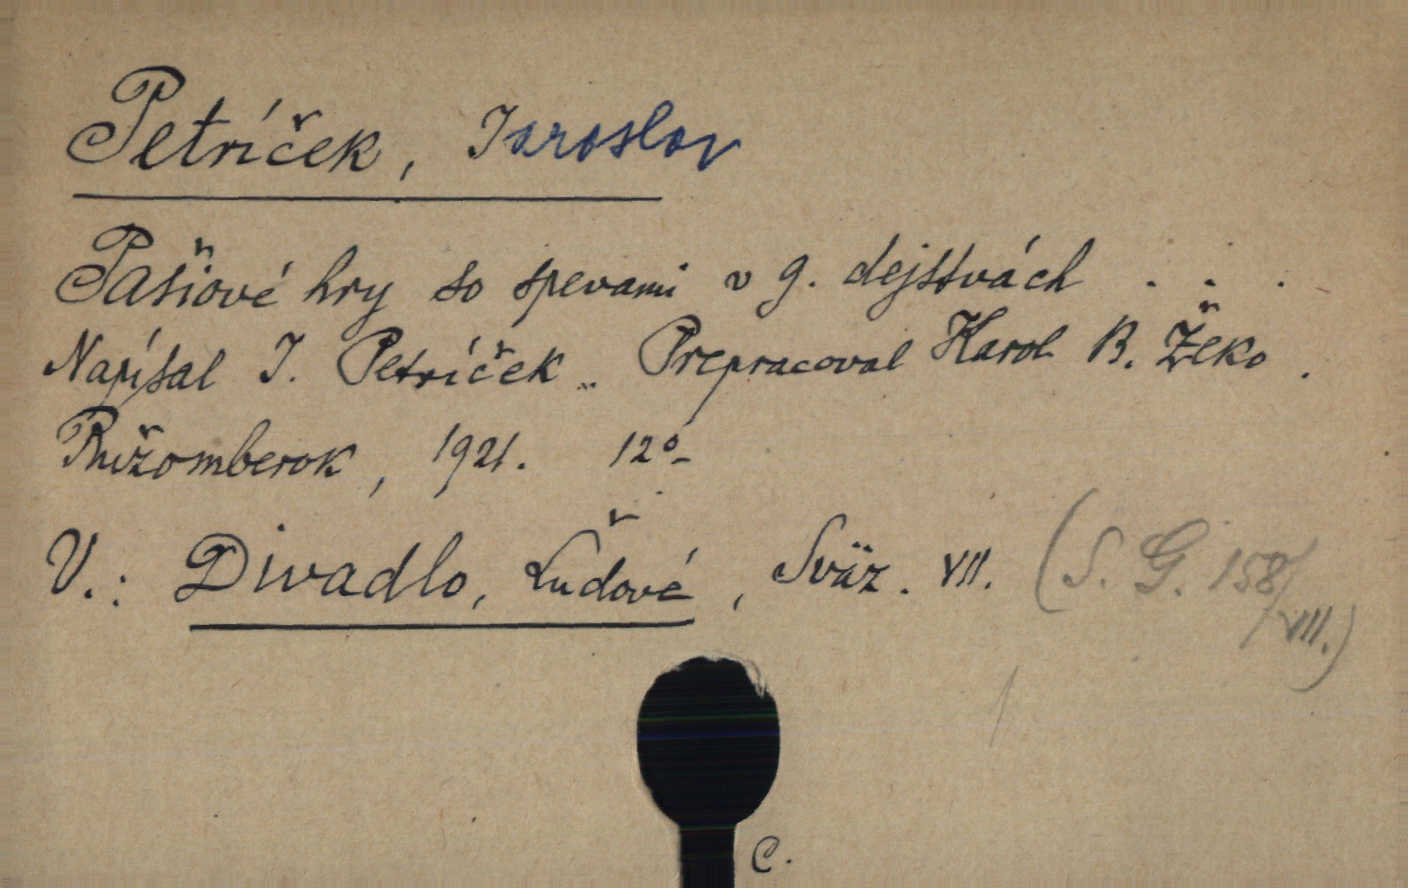 Petríček, Jaroslav
Pašiové hry so spevami v 9. dejstvách . . .
Napísal J. Petríček.. Prepracoval Karol B. Žeko.
Ružomberok, 1921. 12°
V.: Divadlo, Ľudové, Sväz. VII. (S. G. 158/VII.)
C.